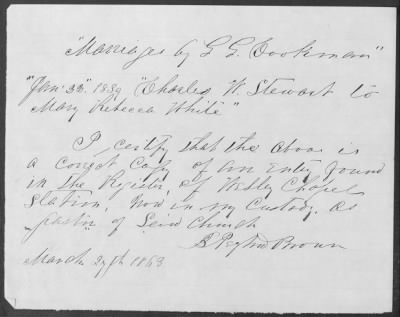 "Marriages by G. G. Cookman"
"Jan. 22". 1839 "Charles W. Stewart to
Mary Rebecca White"
I certify that the above is
a correct copy of an Entry found
in the Register, of Wesley Chapel
Station, now in my custody, as
pastor of said Church
B Peyton Brown
March 27th 1863